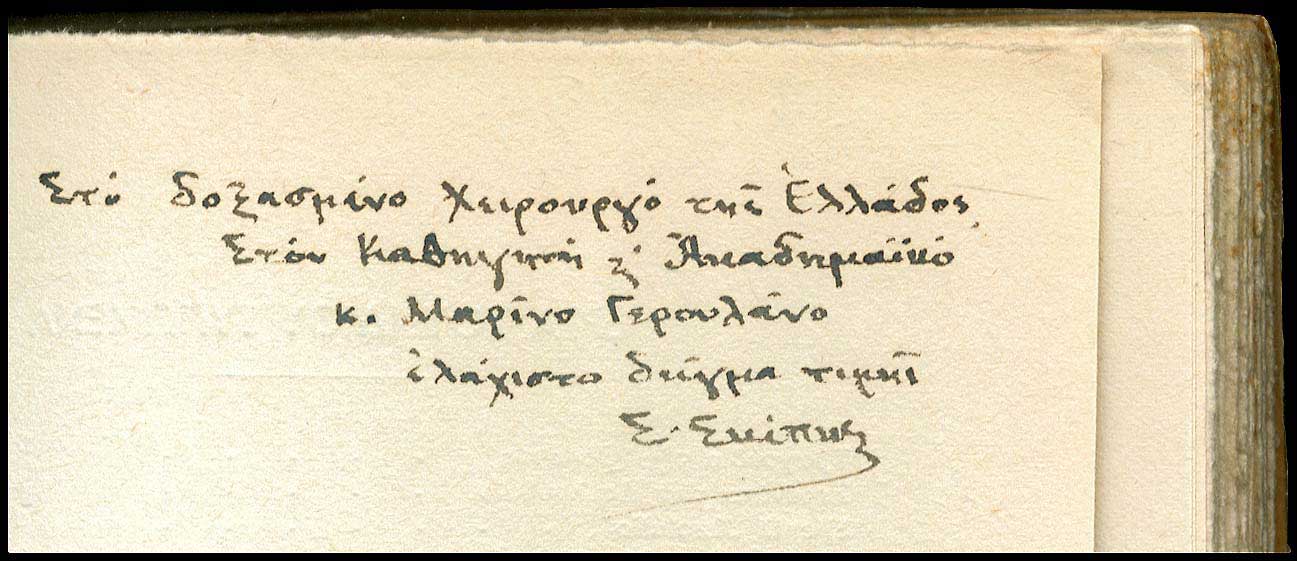 Στό δοξασμένο Χειρουργό τῆς Ἑλλάδος
Στόν Καθηγητή κι' Ἀκαδημαϊκό
κ. Μαρῖνο Γερουλάνο
ἐλάχιστο δεῖγμα τιμῆς
Σ. Σκίπης